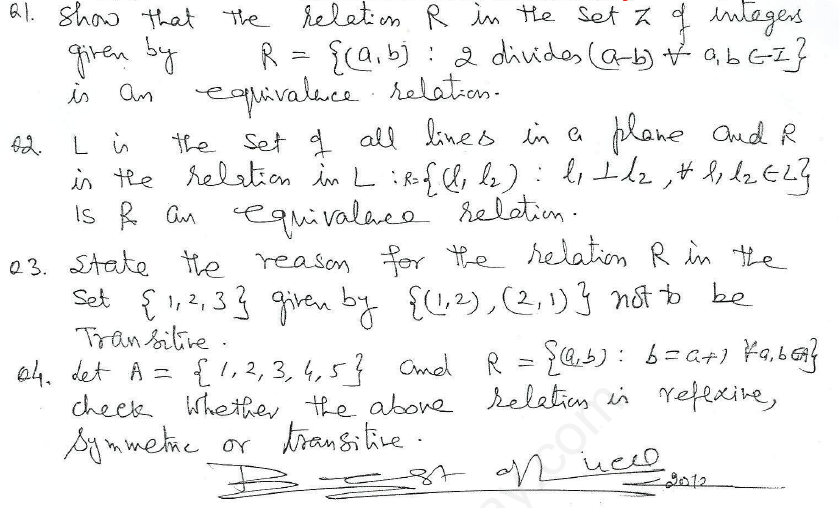 Q1. Show that the relation R in the set Z of integers
given by R = {(a,b) : 2 divides (a-b) ∀ a,b ∈ I}
is an equivalence relation.
Q2. L is the set of all lines in a plane and R
is the relation in L : R={(l₁ l₂) : l₁ ⊥ l₂ , ∀ l₁ l₂ ∈ L}
Is R an equivalence relation.
Q3. State the reason for the relation R in the
set {1,2,3} given by {(1,2), (2,1)} not to be
Transitive.
Q4. Let A = {1,2,3,4,5} and R = {(a,b) : b = a+1 ∀ a,b ∈ A}
check whether the above relation is reflexive,
Symmetric or transitive.
Best of
2012